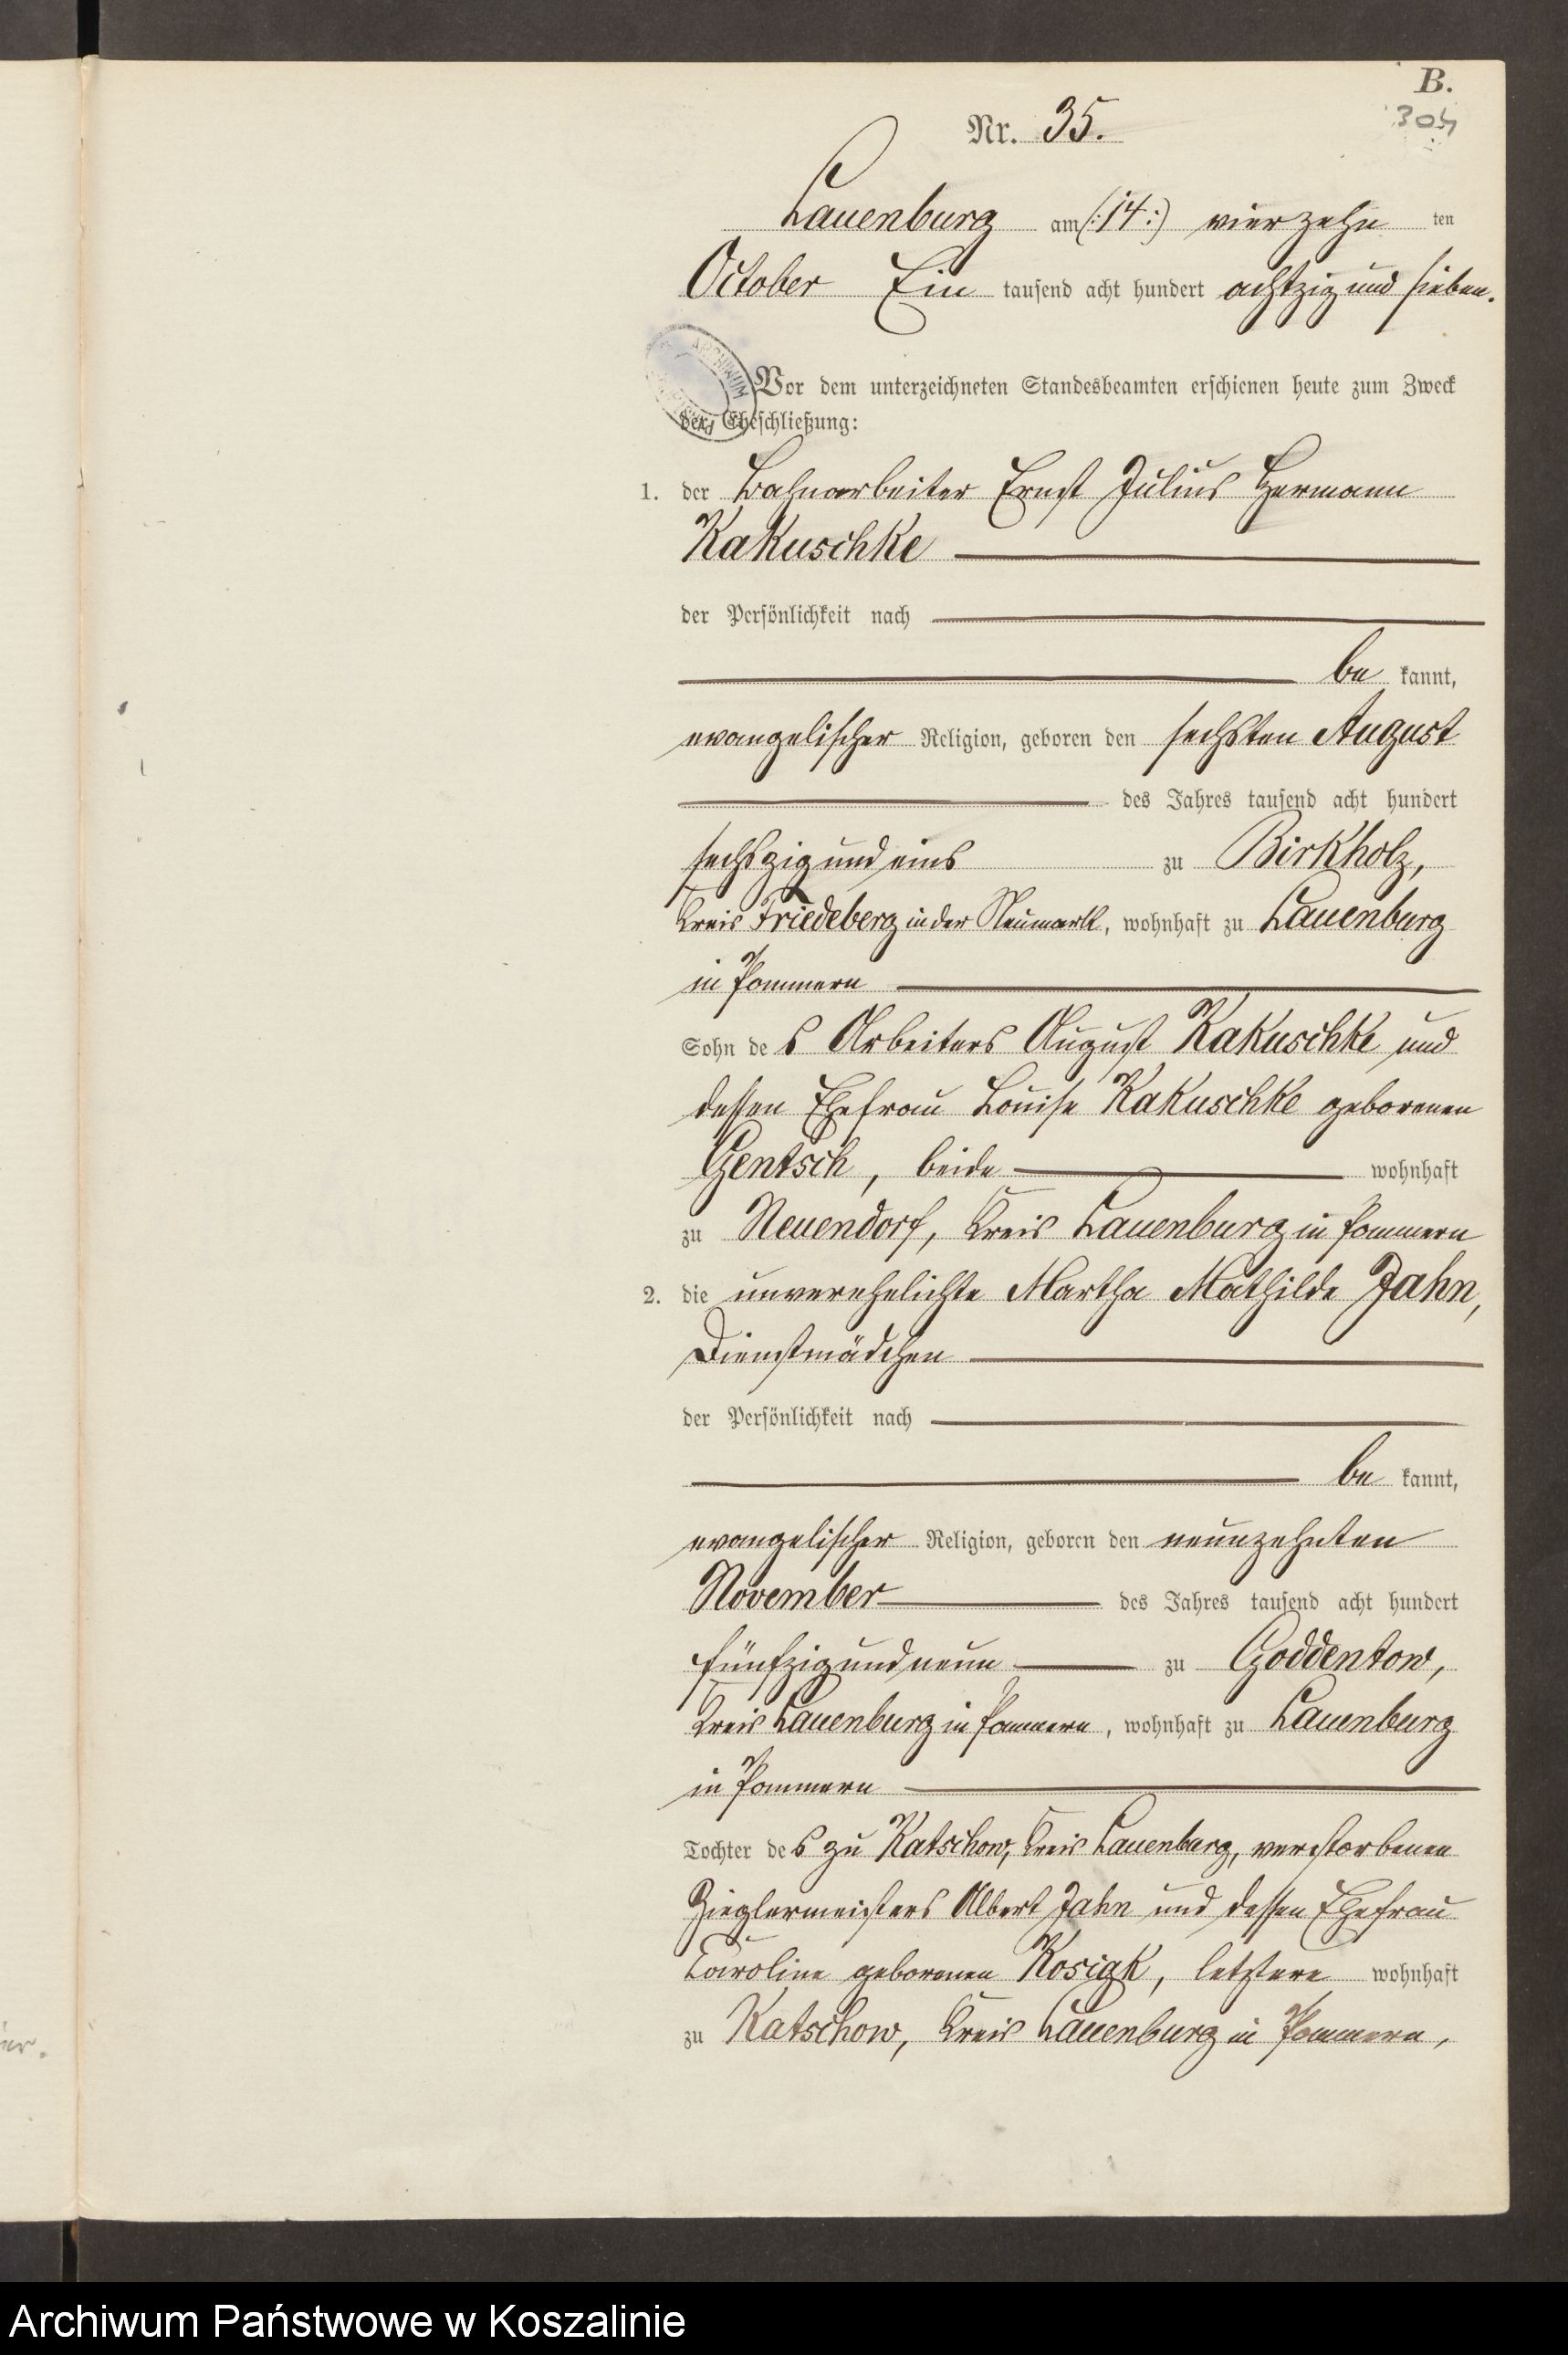 B.
304
Nr. 35.
Lauenburg am (:14:) vierzehn ten
October Ein tausend acht hundert achtzig und sieben.
ARCHIWUM
Vor dem unterzeichneten Standesbeamten erschienen heute zum Zweck
der Eheschließung:
1. der Bahnarbeiter Ernst Julius Hermann
Kakuschke
der Persönlichkeit nach
be kannt,
evangelischer Religion, geboren den sechsten August
des Jahres tausend acht hundert
sechszig und eins zu Birkholz,
Kreis Friedeberg in der Neumark, wohnhaft zu Lauenburg
in Pommern
Sohn des Arbeiters August Kakuschke und
dessen Ehefrau Louise Kakuschke geborenen
Gentsch, beide wohnhaft
zu Neuendorf, Kreis Lauenburg in Pommern
2. die unverehelichte Martha Mathilde Jahn,
Dienstmädchen
der Persönlichkeit nach
be kannt,
evangelischer Religion, geboren den neunzehnten
November des Jahres tausend acht hundert
fünfzig und neun zu Goddentow,
Kreis Lauenburg in Pommern, wohnhaft zu Lauenburg
in Pommern
Tochter des zu Katschow, Kreis Lauenburg, verstorbenen
Zieglermeisters Albert Jahn und dessen Ehefrau
Caroline geborenen Kosigk, letztere wohnhaft
zu Katschow, Kreis Lauenburg in Pommern,
Archiwum Państwowe w Koszalinie